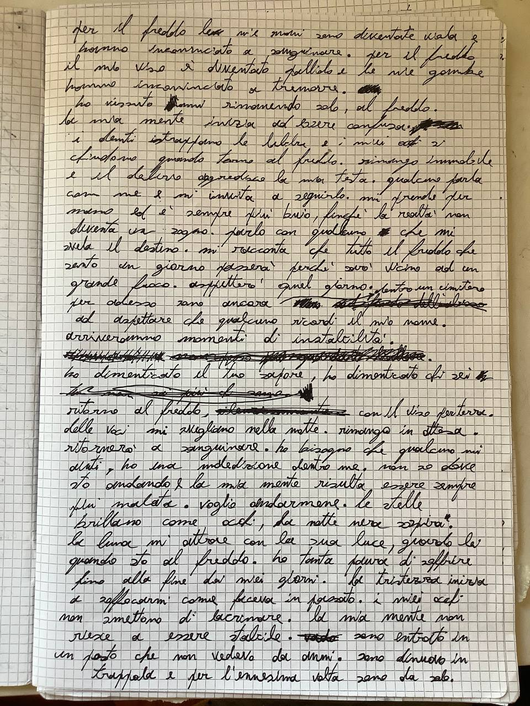 per il freddo le mie mani sono diventate viola e
hanno incominciato a sanguinare. per il freddo
il mio viso è diventato pallido e le mie gambe
hanno incominciato a tremare.
ho vissuto anni rimanendo solo, al freddo.
la mia mente inizia ad essere confusa
i denti strappano le labbra e i miei occhi si
chiudono quando torno al freddo. rimango immobile
e il dolore aggredisce la mia testa. qualcuno parla
con me e mi invita a seguirlo. mi prende per
mano ed è sempre più buio, finché la realtà non
diventa un sogno. parlo con qualcuno che mi
svela il destino. mi racconta che tutto il freddo che
sento un giorno passerà perché sarò vicino ad un
grande fuoco. aspetterò quel giorno. dentro un cimitero
per adesso sono ancora
ad aspettare che qualcuno ricordi il mio nome.
arriveranno momenti di instabilità.
ho dimenticato il tuo sapore, ho dimenticato chi sei
ritorno al freddo, con il viso per terra.
delle voci mi svegliano nella notte. rimango in attesa.
ritornerò a sanguinare. ho bisogno che qualcuno mi
aiuti, ho una maledizione dentro me. non so dove
sto andando e la mia mente risulta essere sempre
più malata. voglio andarmene. le stelle
brillano come occhi, la notte nera respira.
la luna mi attrae con la sua luce, guardo là
quando sto al freddo. ho tanta paura di soffrire
fino alla fine dei miei giorni. la tristezza inizia
a soffocarmi come faceva in passato. i miei occhi
non smettono di lacrimare. la mia mente non
riesce a essere stabile. sono entrato in
un posto che non vedevo da anni. sono di nuovo in
trappola e per l'ennesima volta sono da solo.